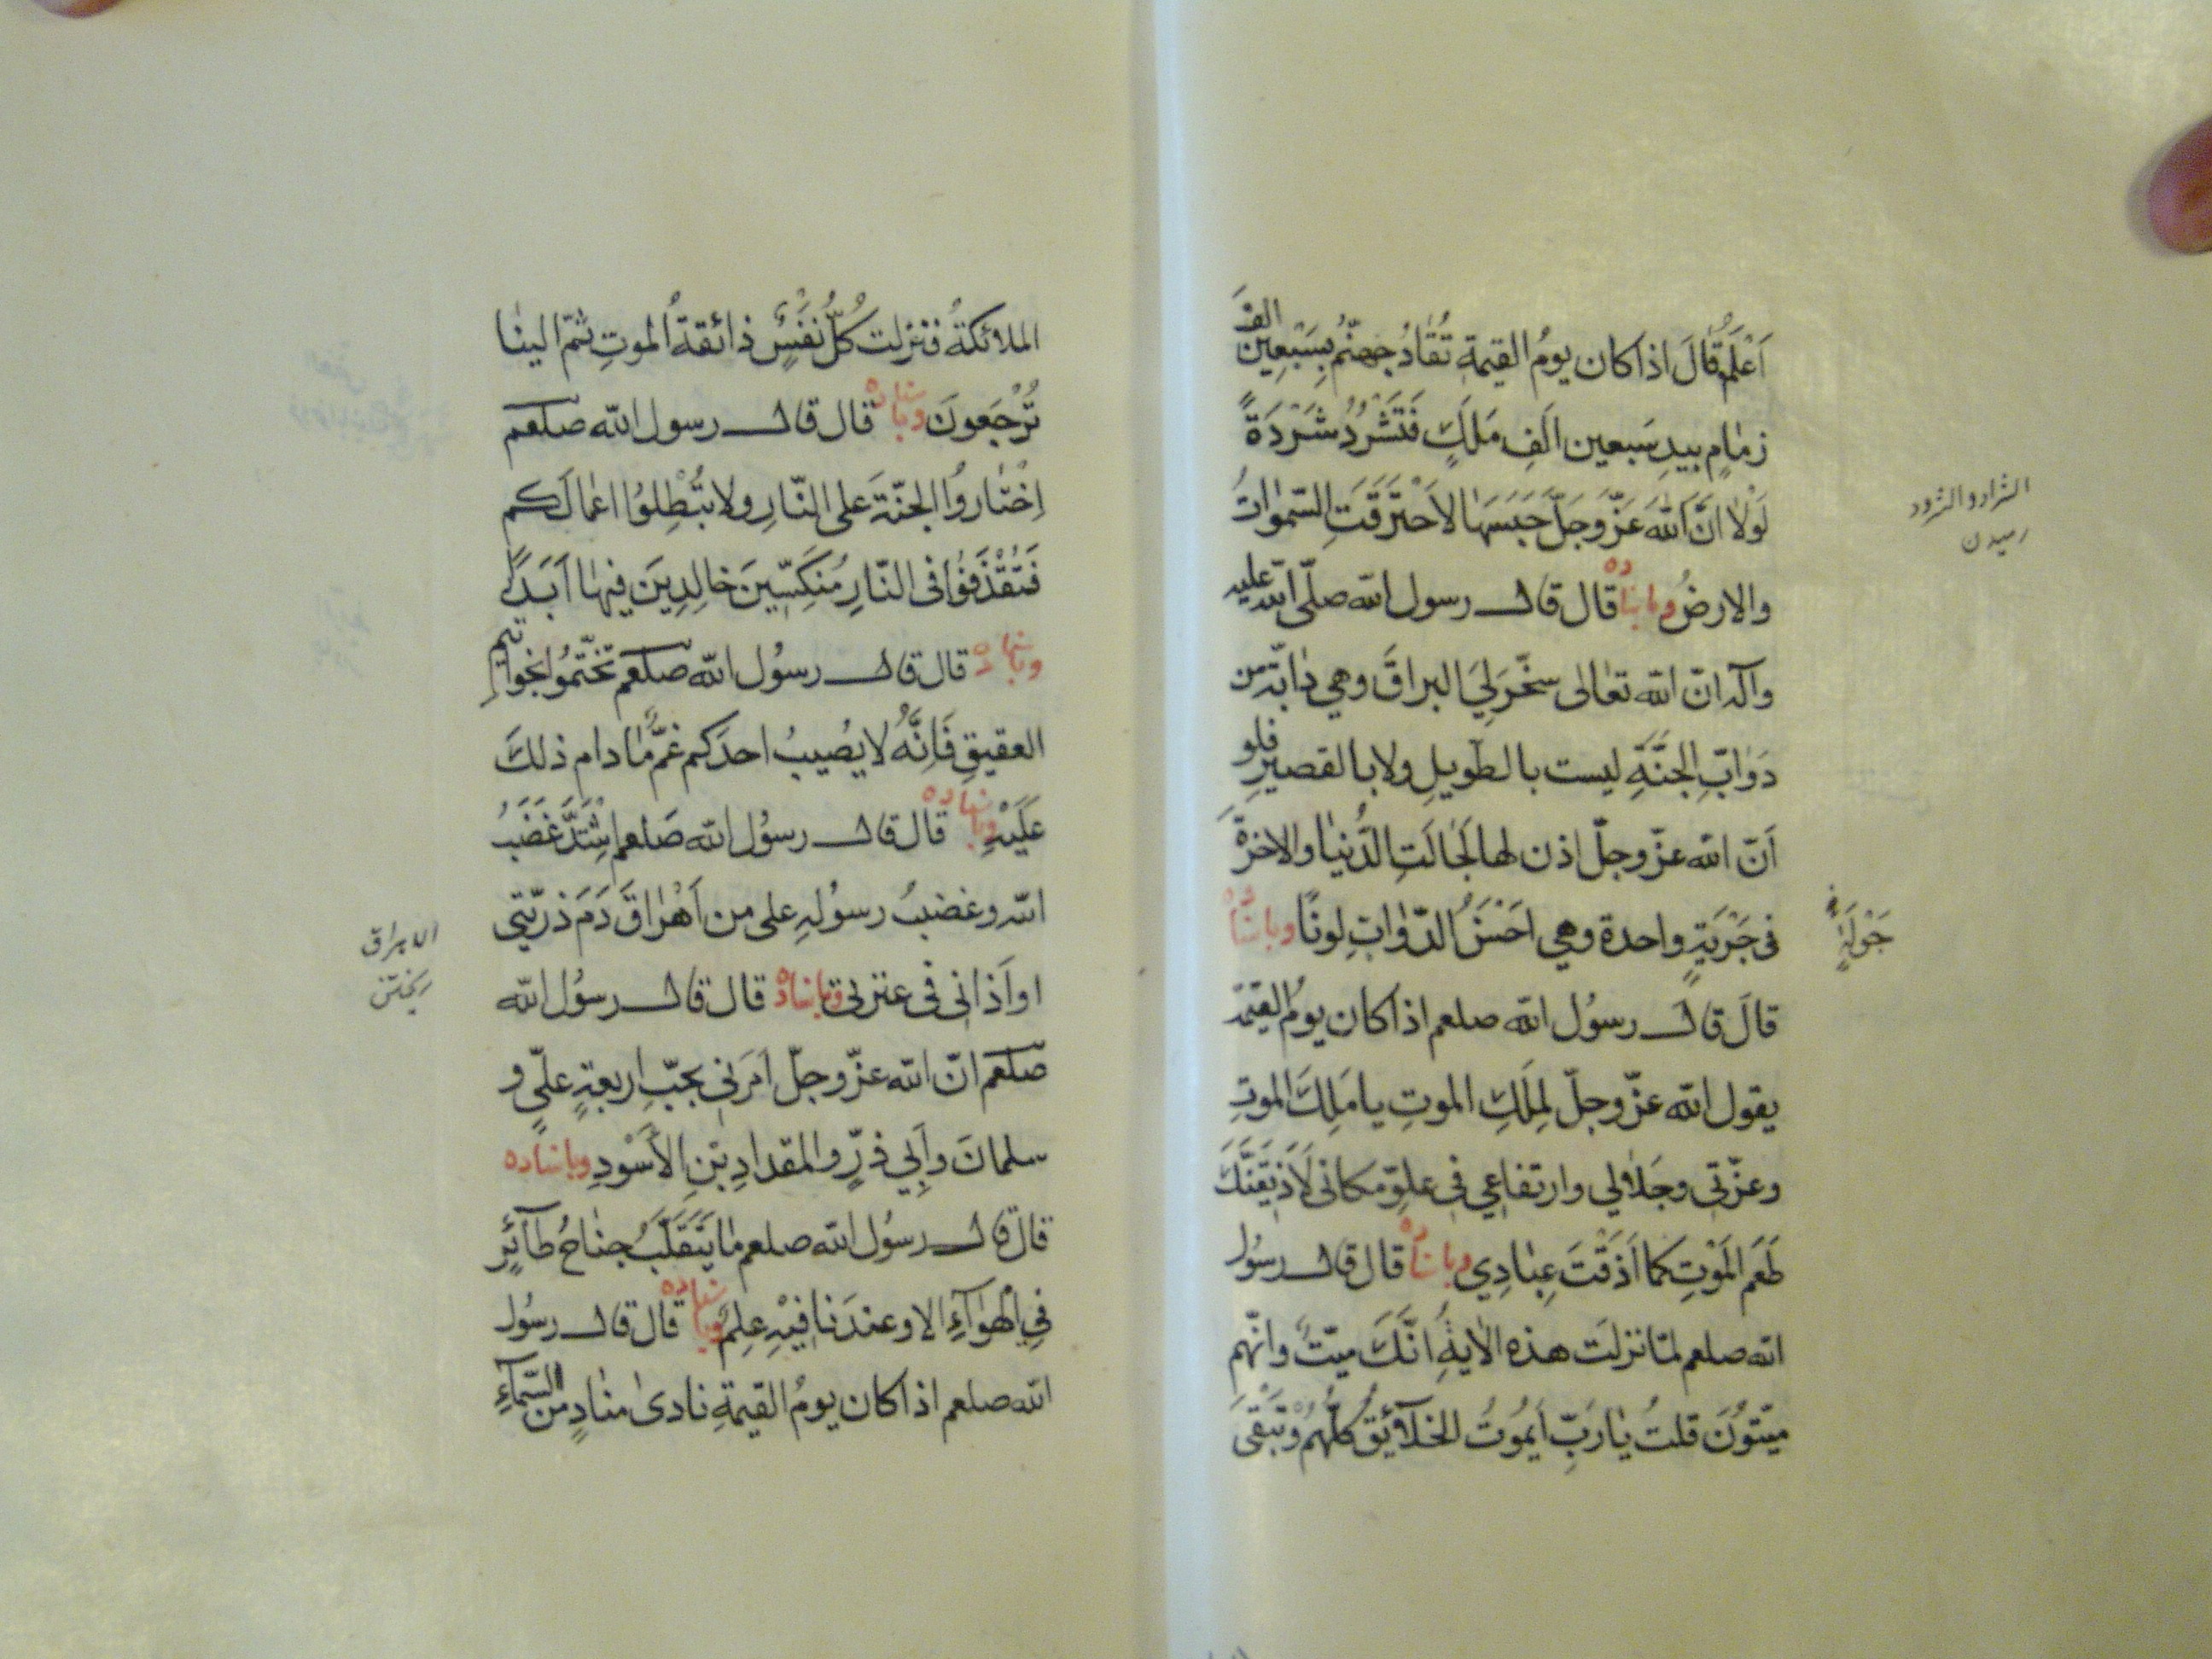 اَعْلَمُ قَالَ اذا كان يومُ القيمةِ تُقَادُ جهنّمُ بِسَبْعِينَ الفَ
زمامٍ بيدِ سَبعين اَلفِ مَلَكٍ فَتَشْرُدُ شَرْدَةً
لَوْلا انَّ اللهَ عَزَّوَجَلَّ حَبَسَهَا لاَحْتَرَقَتِ السّمواتُ
والارضُ وباسناده قال قال رسول الله صلّى الله عليه
وآله انّ الله تعالى سخّرَ لِيَ البراقَ وهي دابّة من
دَوَابِّ الجنَّةِ ليست بالطويلِ ولا بالقصيرِ فلو
اَنّ الله عزّوجلّ اذن لها لَجَالَتِ الدُّنيا والاخرةَ
فى جَرْيَةٍ واحدة وهي احَسْنُ الدّوابِّ لونًا وباسناده
قالَ قال رسُول الله صلعم اذا كان يومُ القيمة
يقول الله عزّوجلّ لِمَلَكِ الموتِ يا مَلَكَ الموتِ
وعزّتي وجَلالي وارتفاعي فى علوّ مكانى لَاُذيقَنَّكَ
طَعَم المَوْتِ كما اَذَقْتَ عِبَادِي وباسناده قال قال رسُول
الله صلعم لمّا نزلَت هذه الايةُ انَّكَ ميّتٌ وانّهم
ميّتُونَ قلتُ يارَبِّ اَيَموُتُ الخلآئِقُ كلُّهُمْ وتَبْقى
الشراد والشرود
رميدن
جَوْلَةٍ خ
الملائكةُ فنزلت كُلُّ نفَسٍْ ذائقةُ الموتِ ثمّ الينا
تُرْجَعونَ وباسناده قال قال رسول الله صلعم
اِخْتاروُا الجنّةَ على النّارِ ولا تُبْطِلوُا اعمالَكم
فَتُقْذَفوُا فى النّارِ مُنَكَسّينَ خالِدِينَ فيها اَبَدًا
وباسناده قال قال رسُول الله صلعم تَخَتّمُوا بخواتيمِ
العقيقِ فَاِنَّهُ لا يصُيبُ احدَكم غَمٌّ مادام ذلكَ
عَلَيْهِ وباسناده قال قال رسُول الله صلعم اِشْتَدَّ غَضَبُ
الله وغضبُ رسوُلِهِ على من اَهْراقَ دَمَ ذرّيّتي
او اَذانى فى عترتى وباسناده قال قال رسُول الله
صلعم انّ الله عزّوجلّ اَمَرَنى بحُبِّ اربعةٍ علىٍّ و
سلمانَ واَبي ذرٍّ والمقدادِ بْنِ الأَسْودِ وباسناده
قال قال رسُول الله صلعم ما يَتَقَلَّبُ جناحُ طآئِرٍ
فِي الْهَوآءِ الا وعندَنا فيْهِ علِمٌ وباسناده قال قال رسُول
الله صلعم اذا كان يومُ القيمةِ نادى منادٍ من السَّمآءِ
الاهراق
ريختن